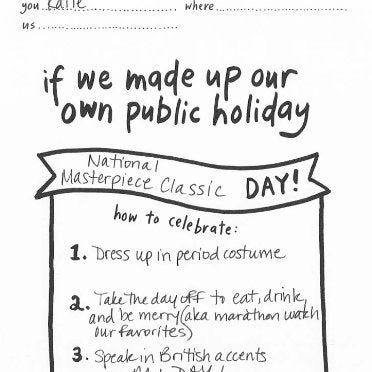 you Katie where
us
if we made up our
own public holiday
National
Masterpiece Classic DAY!
how to celebrate:
1. Dress up in period costume
2. Take the day off to eat, drink,
and be merry (aka marathon watch
our favorites)
3. Speak in British accents
ALL DAY!